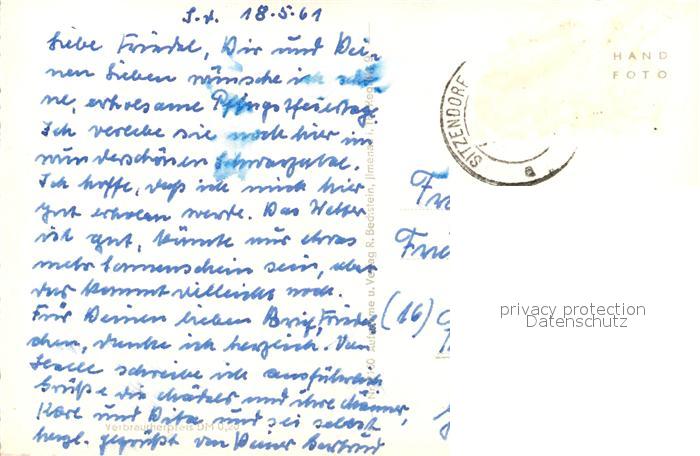 S. d. 18.5.61
Liebe Friedel, Dir und Dei-
nen Lieben wünsche ich schö-
ne, erholsame Pfingstfeiertage.
Ich verlebe sie noch hier im
wunderschönen Schwarzatal.
Ich hoffe, daß ich mich hier
gut erholen werde. Das Wetter
ist gut, könnte nur etwas
mehr Sonnenschein sein, aber
das kommt vielleicht noch.
Für Deinen lieben Brief, Friedel-
chen, danke ich herzlich. Von
Halle schreibe ich ausführlich
Grüße die Mädels und ihre Männer,
Käre und Dita und sei selbst
herzl. gegrüßt von Deiner Gertrud
Verbraucherpreis DM 0,20
Aufnahme u. Verlag R. Bechstein, Ilmenau
HAND
FOTO
SITZENDORF
a
(16)
privacy protection
Datenschutz